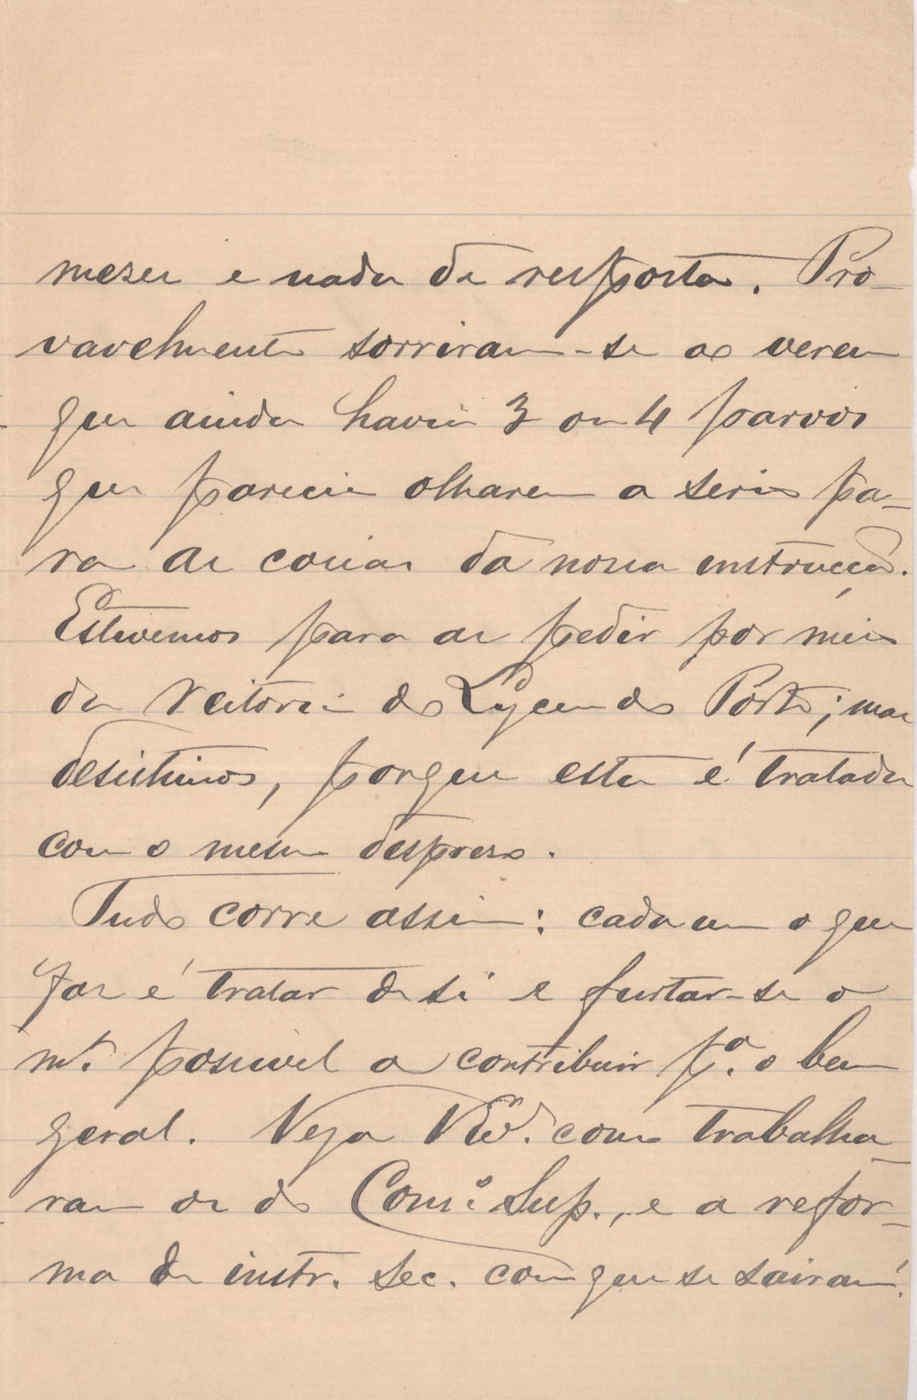 mezes e nada de resposta. Pro-
vavelmente sorriram-se ao verem
que ainda havia 3 ou 4 parvos
que parecia olharem a serio pa-
ra as coisas da nossa instrucção.
Estivemos para as pedir por meio
da reitoria do Lyceu do Porto; mas
desistimos, porque esta é tratada
com o mesmo despreso.
Tudo corre assim: cada um o que
faz é tratar de si e furtar-se o
mt. possivel a contribuir pª. o bem
geral. Veja V Exª. como trabalha-
ram os do Consº. Sup., e a refor-
ma de instr. sec. com que se sairam!